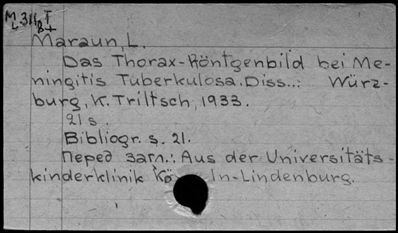 M 311, T
L B+
Maraun, L.
Das Thorax-Röntgenbild bei Me-
ningitis Tuberkulosa. Diss..: Würz-
burg, K. Triltsch, 1933.
21 s.
Bibliogr. s. 21.
Перед загл.: Aus der Universitäts-
kinderklinik Kö In-Lindenburg.